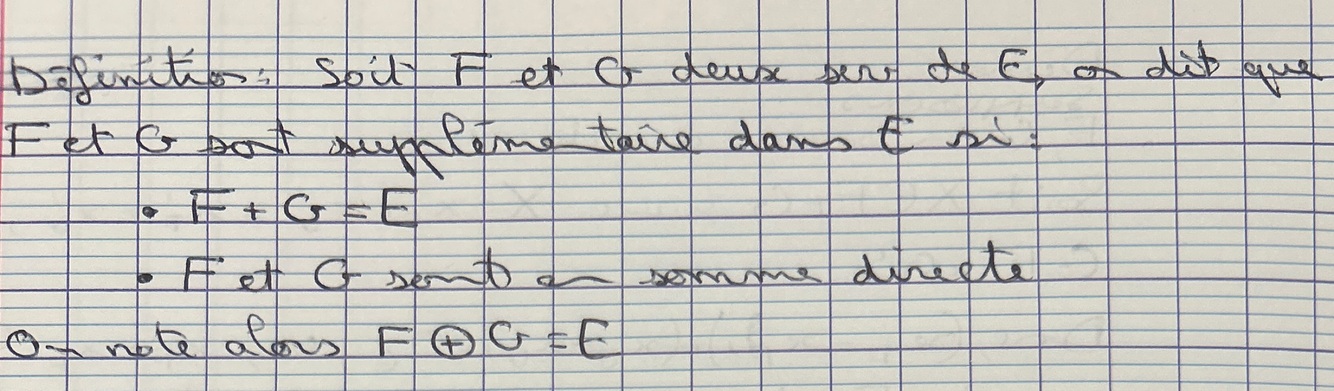 Définition : Soit F et G deux sev de E, on dit que
F et G sont supplémentaire dans E si :
• F + G = E
• F et G sont en somme directe
On note alors F ⊕ G = E